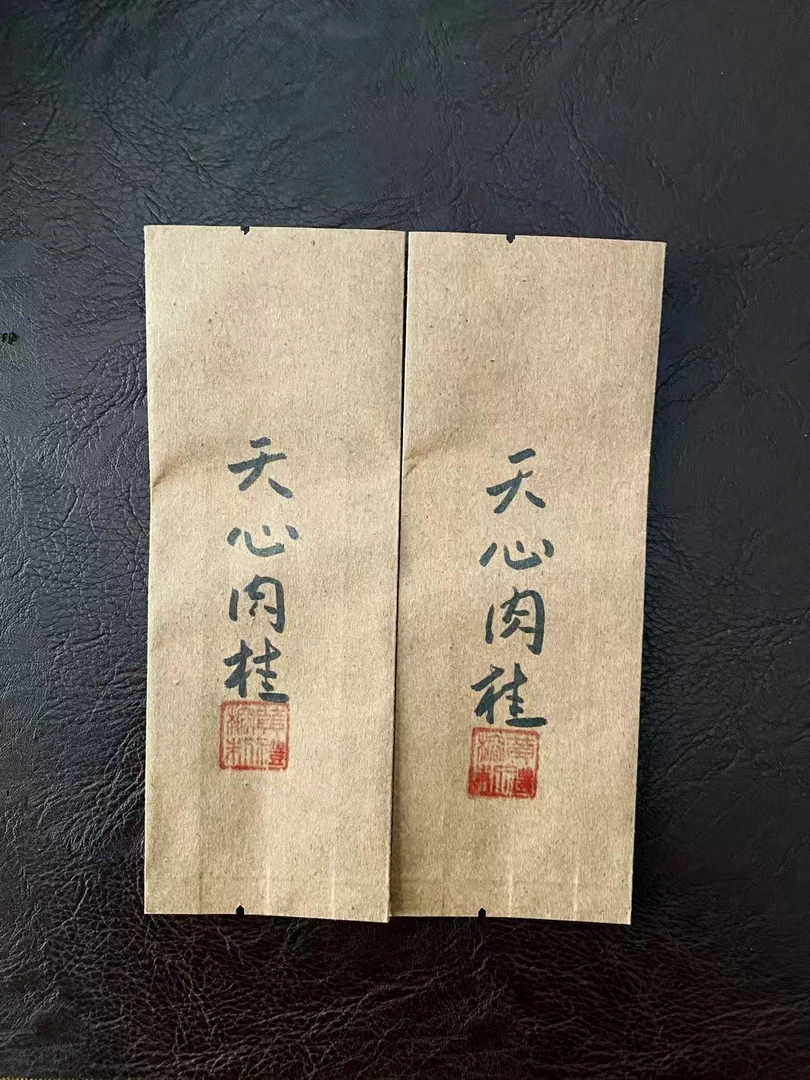 天心肉桂
天心肉桂